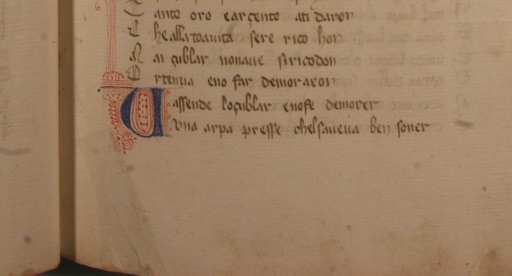 T anto oro earçento ati daror
C he alla toa uita sere rico hor
M ai çublar non aue si rico don
O r ten ua eno far demoraxor
V assende loçublar enose demorer
V na arpa presse chelsaueua ben soner